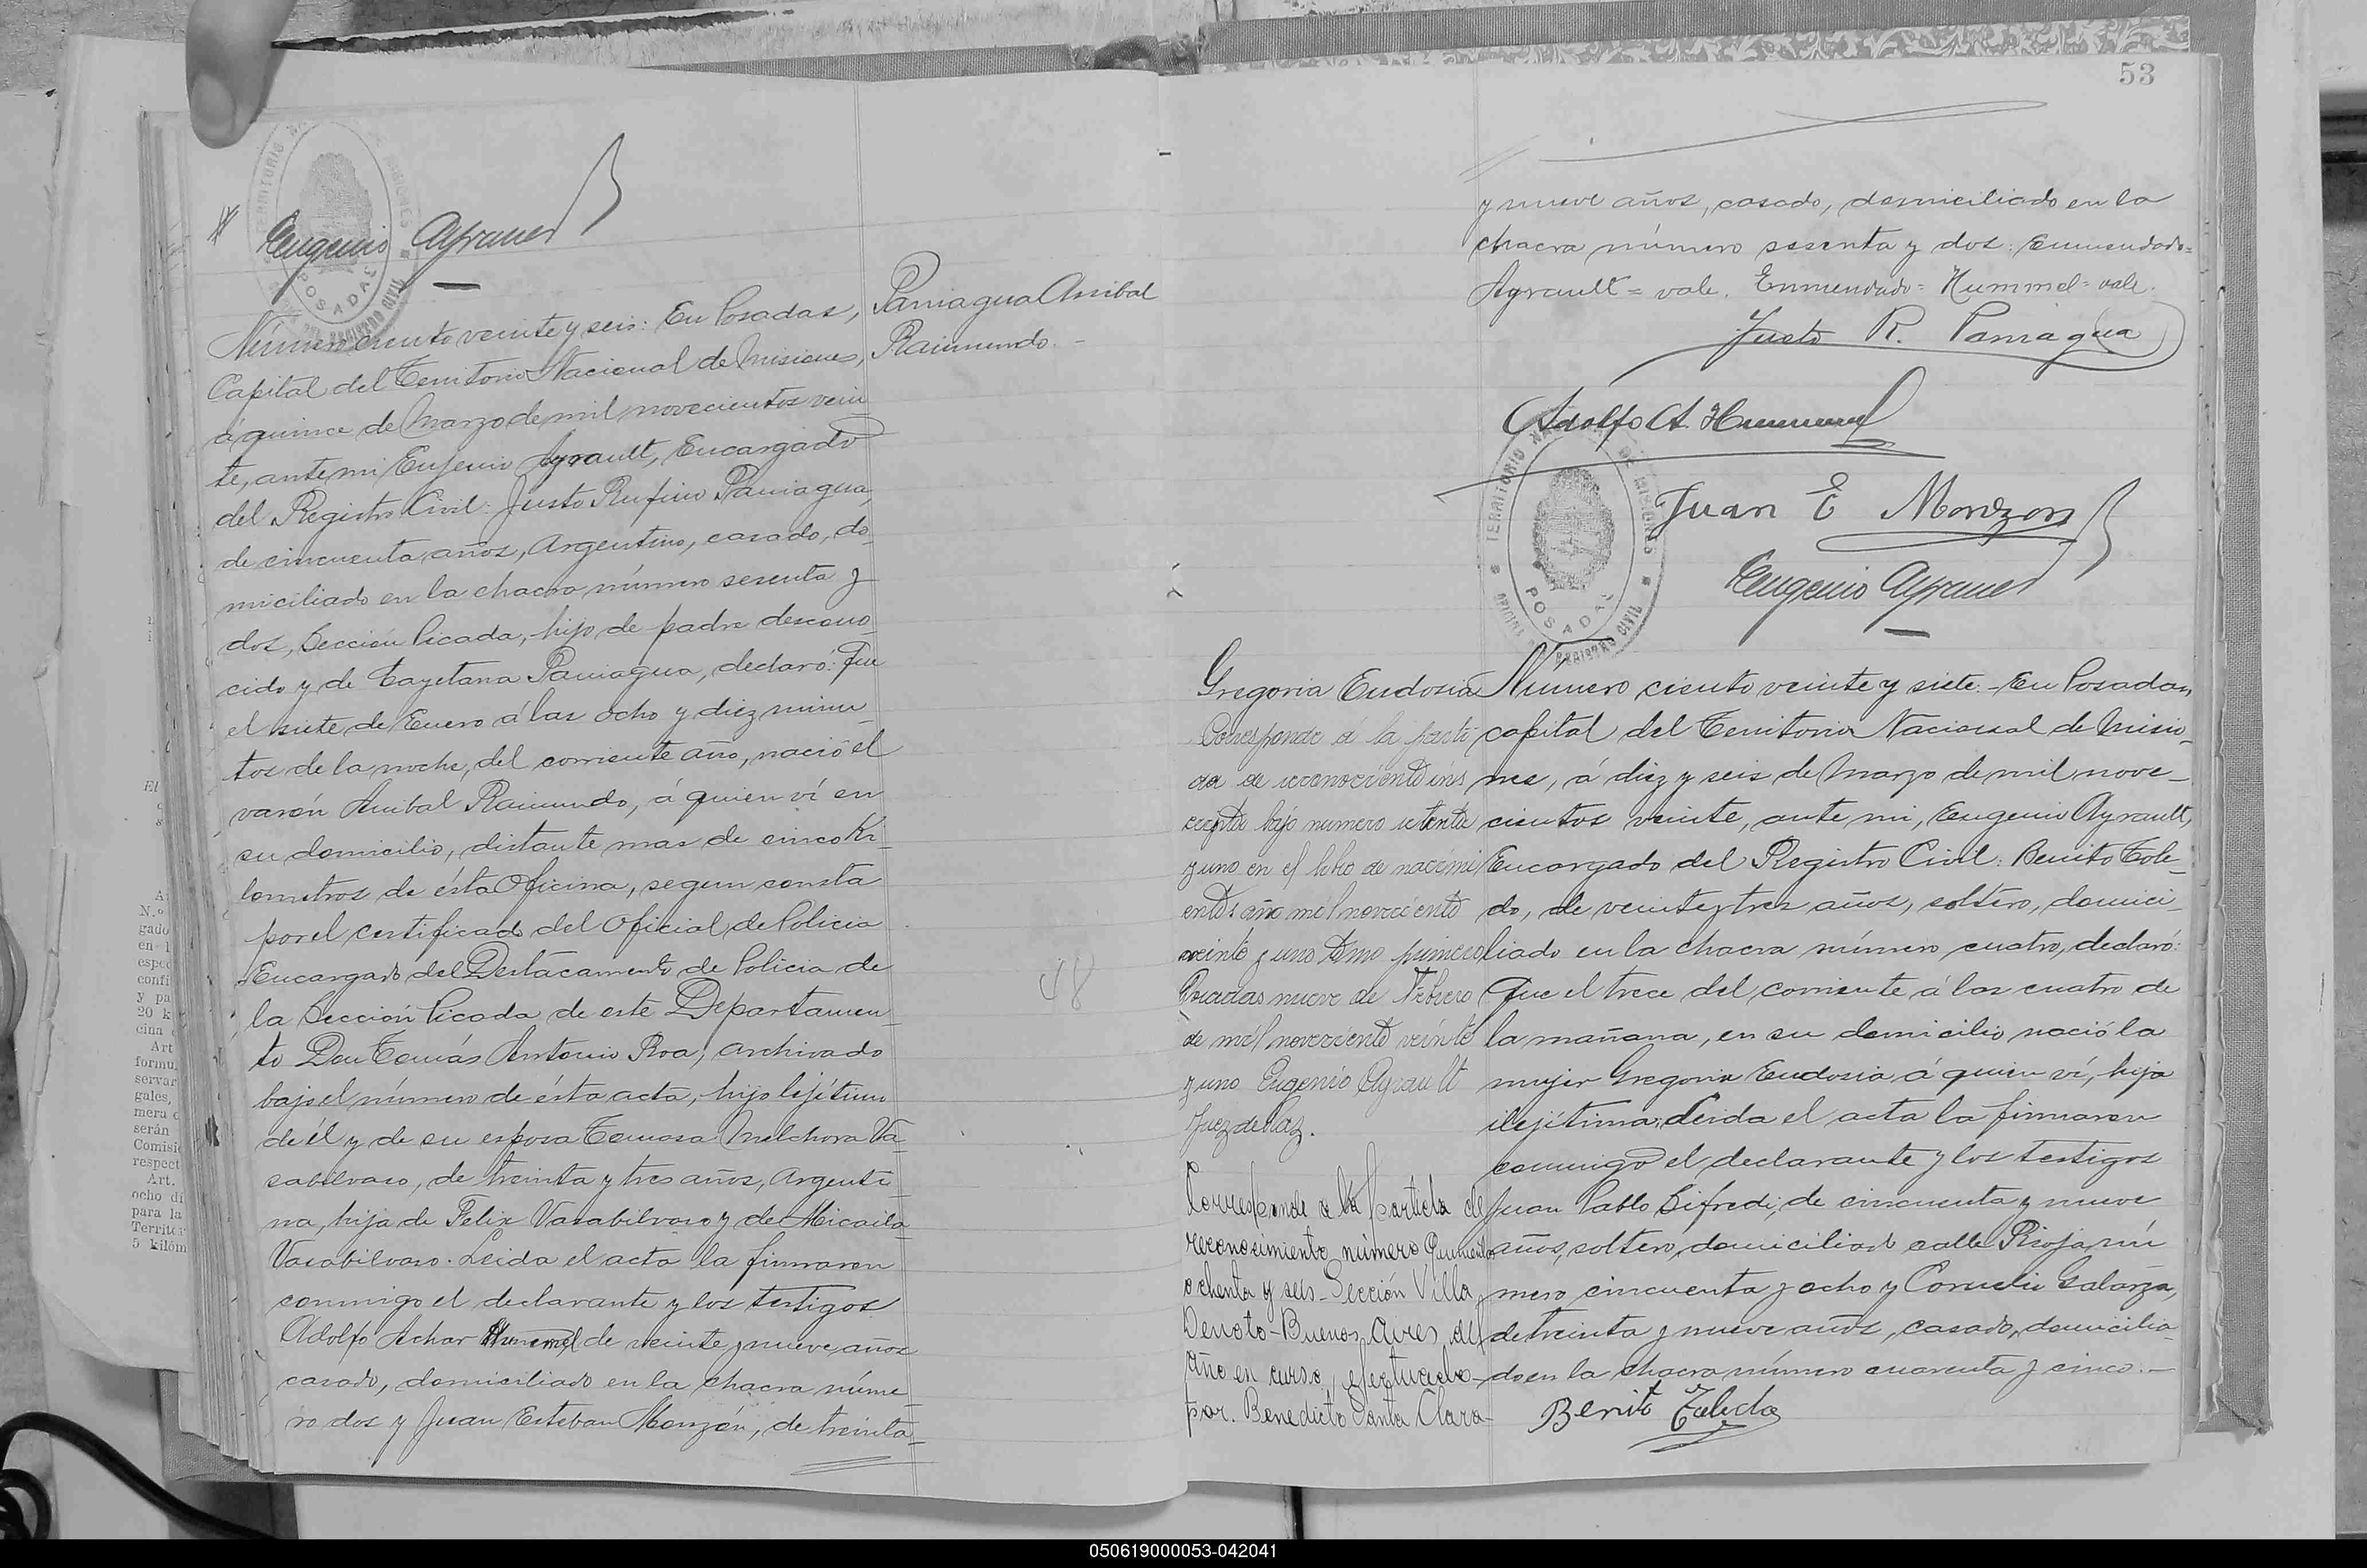 Eugenio Ayrault
TERRITORIO
POSADAS
REGISTRO CIVIL
Paniagua Anibal
Raimundo.-
Número ciento veinte y seis: En Posadas,
Capital del Territorio Nacional de Misiones,
á quince de Marzo de mil novecientos vein
te, ante mi Eujenio Ayrault, Encargado
del Registro Civil: Justo Rufino Paniagua,
de cincuenta años, Argentino, casado, do_
miciliado en la chacra número sesenta y
dos, Sección Picada, hijo de padre descono_
cido y de Cayetana Paniagua, declaró: Que
el siete de Enero á las ocho y diez minu_
tos de la noche, del corriente año, nació el
varón Anibal Raimundo, á quien ví en
su domicilio, distante mas de cinco Ki_
lometros de ésta Oficina, segun consta
por el certificado del Oficial de Policia
Encargado del Destacamento de Policia de
la Sección Picada de este Departamen_
to Don Tomás Antonio Roa, archivado
bajo el número de ésta acta, hijo lejítimo
de él y de su esposa Tomasa Melchora Va_
sabilvaso, de treinta y tres años, Argenti_
na, hija de Felix Vasabilvaso y de Micaila
Vasabilvaso. Leida el acta la firmaron
conmigo el declarante y los testigos
Adolfo Achar Hummel de veinte y nueve años
casado, domiciliado en la chacra núme_
ro dos y Juan Esteban Monzón, de treinta_
48
53
y nueve años, casado, domiciliado en la
chacra número sesenta y dos: Enmendado=
Ayrault= vale. Enmendado= Hummel= vale.
Justo R. Paniagua
Adolfo A. Hummel
Juan E Monzon
Eugenio Ayrault
TERRITORIO NACIONAL DE MISIONES
POSADAS
OFICINA DEL REGISTRO CIVIL
Gregoria Eudosia
Corresponde á la parti
da de reconocimiento ins
cripta bajo numero setenta
y uno en el libro de nacimi
entos año mil novecientos
veinte y uno Tomo primero
Posadas nueve de Febrero
de mil novecientos veinte
y uno Eugenio Ayrault
Juez de Paz.
Corresponde a la partida de
reconocimiento número Quinientos
ochenta y seis - Sección Villa
Devoto - Buenos Aires, del
año en curso, efectuado
por. Benedicto Santa Clara-
Número ciento veinte y siete.- En Posadas,
capital del Territorio Nacional de Misio_
nes, á diez y seis de Marzo de mil nove_
cientos veinte, ante mi, Eugenio Ayrault,
Encargado del Registro Civil: Benito Tole_
do, de veinte y tres años, soltero, domici_
liado en la chacra número cuatro, declaró:
Que el trece del corriente á las cuatro de
la mañana, en su domicilio nació la
mujer Gregoria Eudosia á quien ví, hija
ilejítima; Leida el acta la firmaron
conmigo el declarante y los testigos
Juan Pablo Sifredi, de cincuenta y nueve
años, soltero, domiciliado calle Rioja nú
mero cincuenta y ocho y Cornelio Galarza,
de treinta y nueve años, casado, domicilia_
do en la chacra número cuarenta y cinco.-
Benito Toledo
050619000053-042041